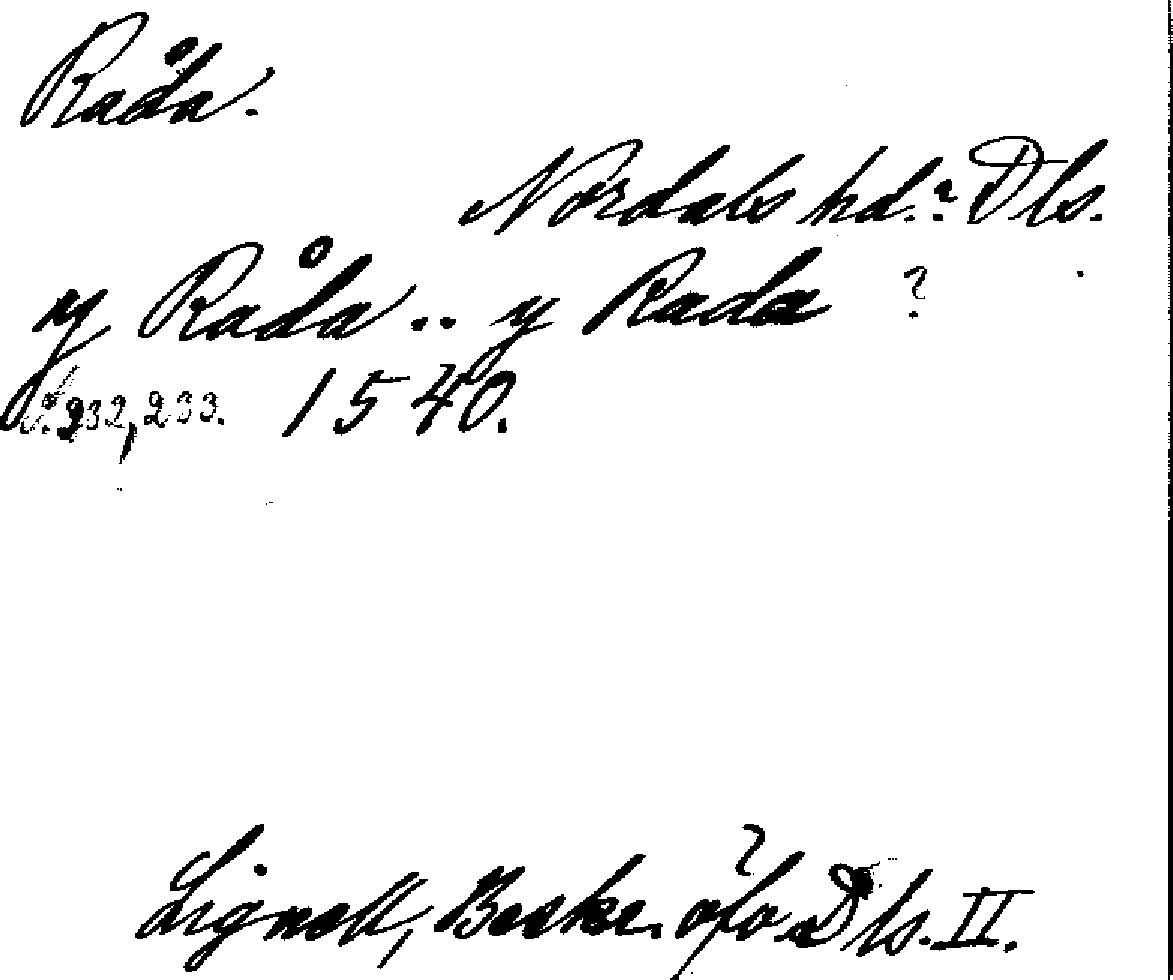 Råda.
Nordals hd.? Dls.
y Råda .. y Rada ?
S. 232, 233. 1540.
Lignell, Beskr. öfv. Dls. II.